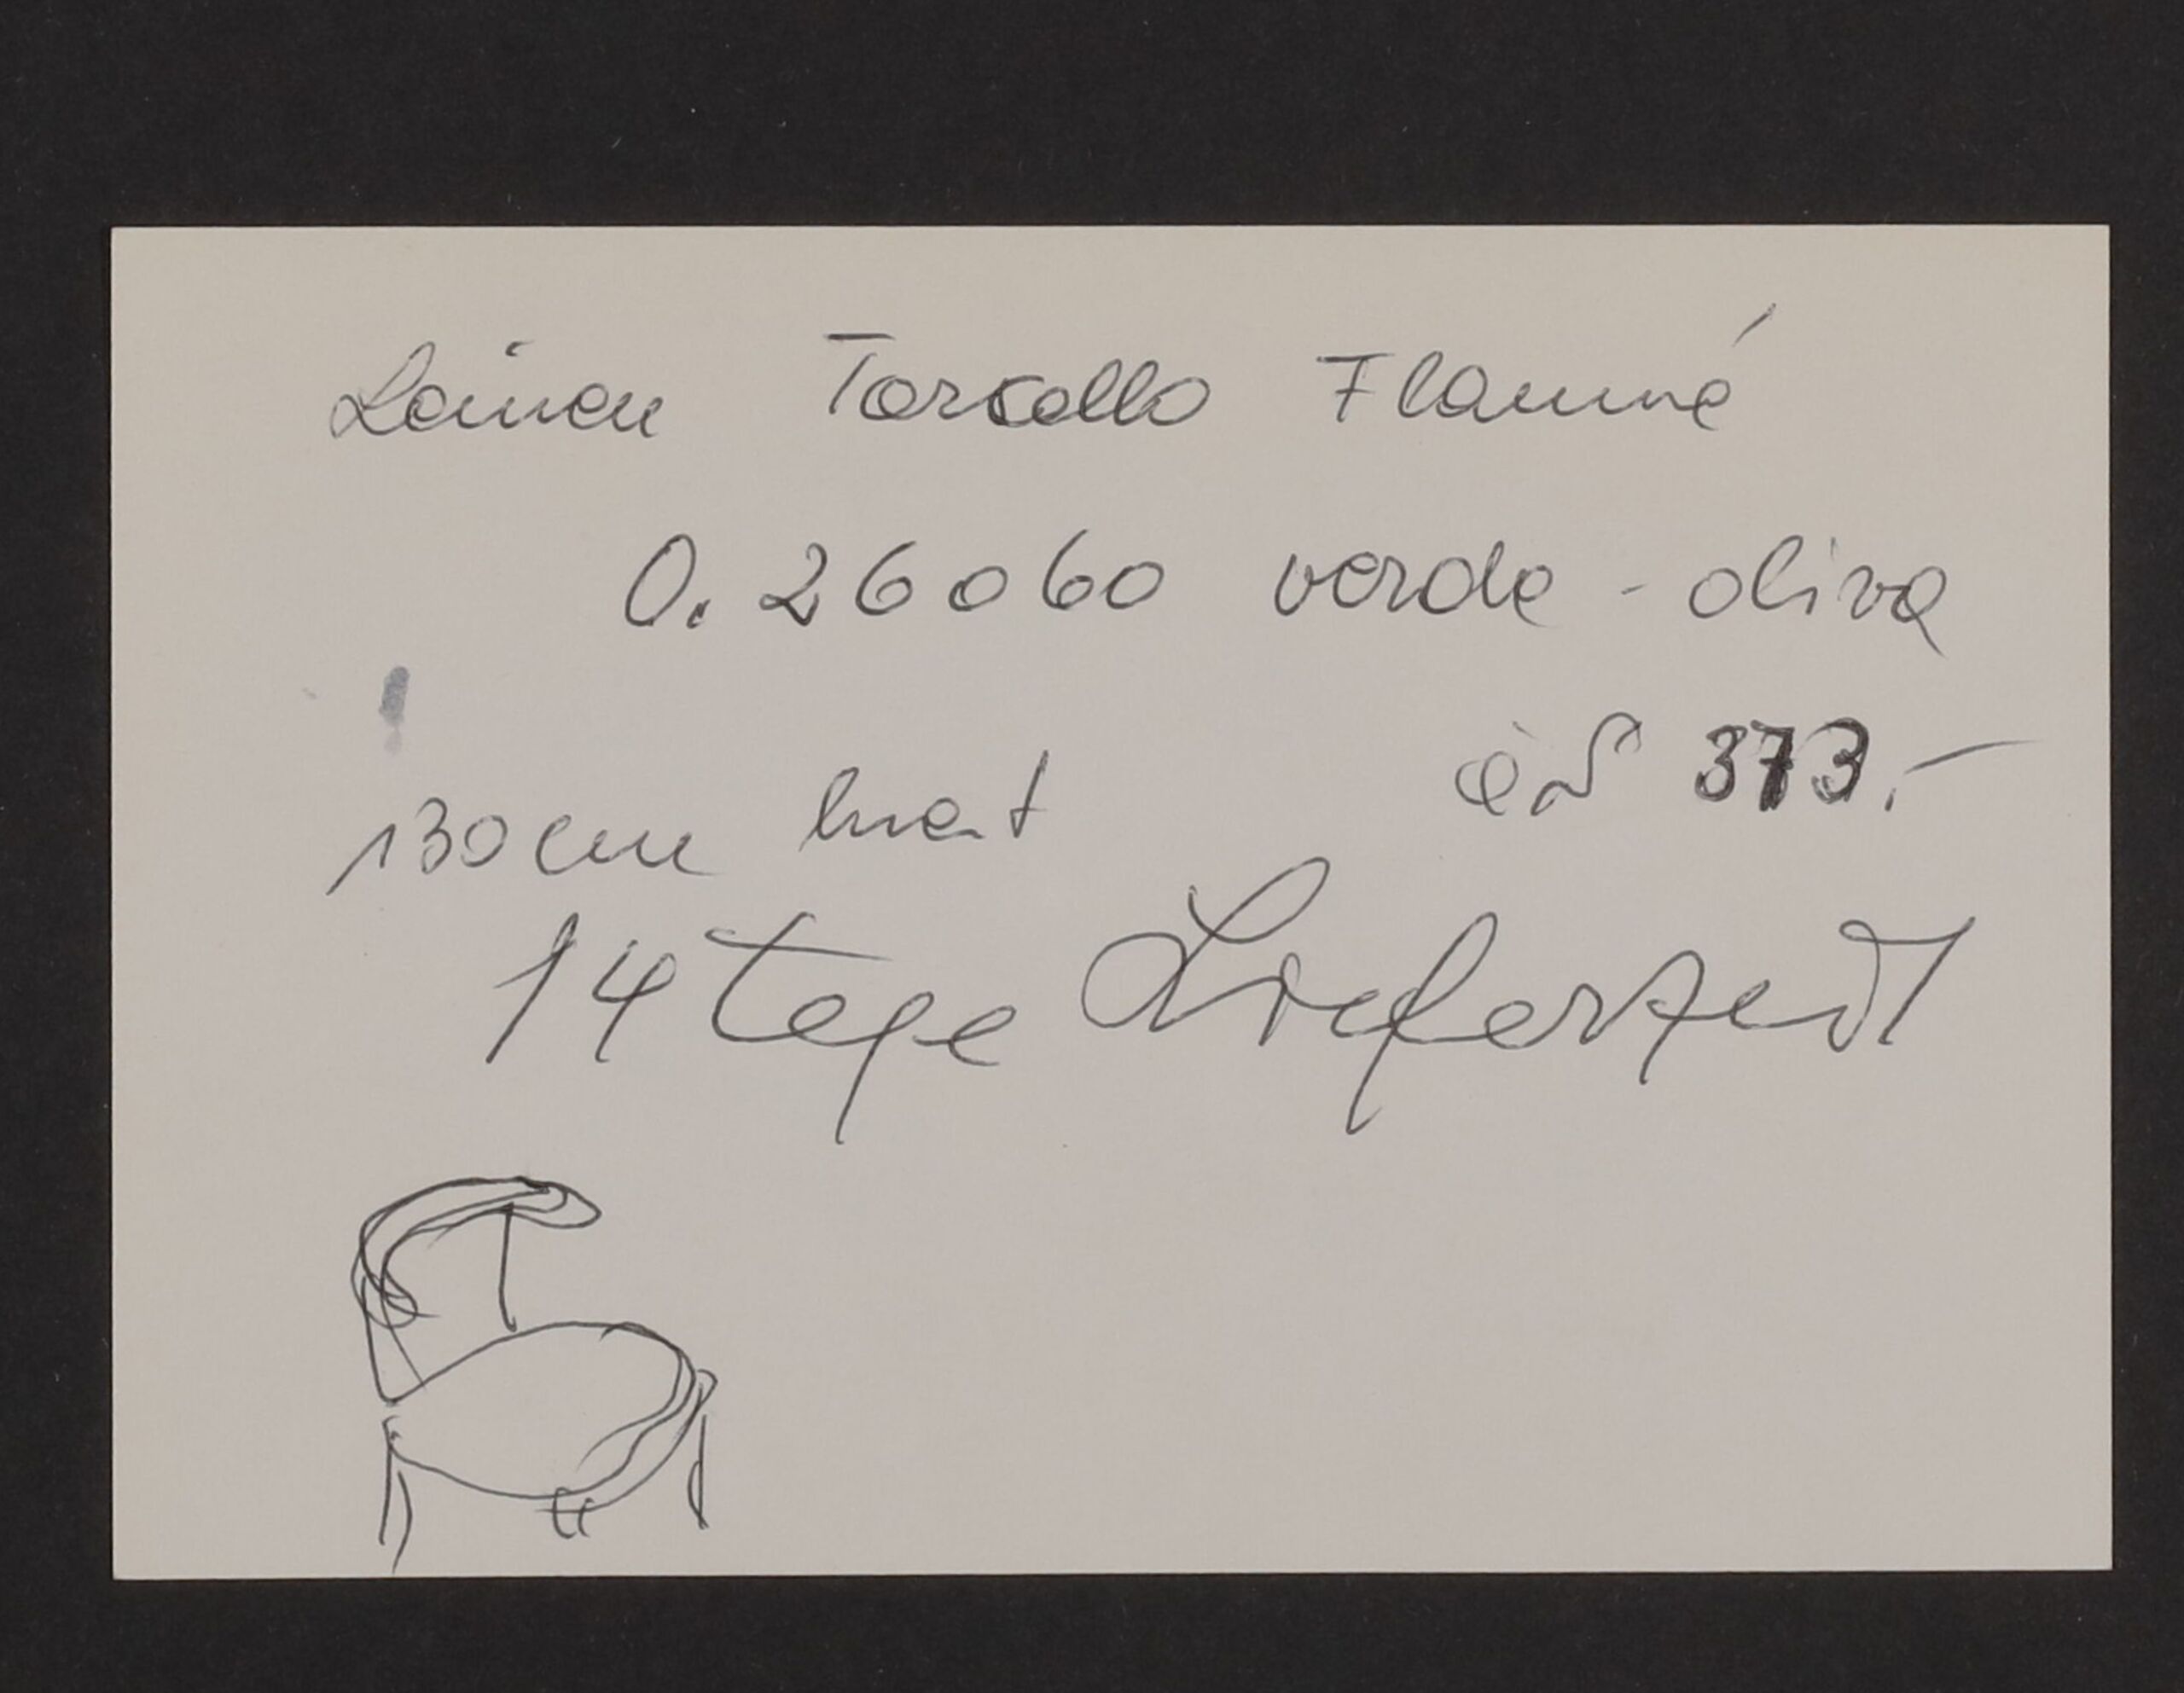 Leinen Torcello Flammé
0.26060 verde - oliva
130 cm breit öS 373.-
14 Tage Lieferzeit